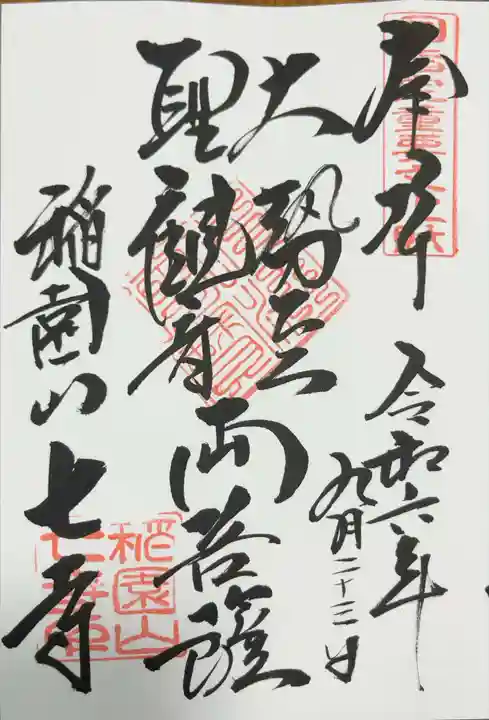 奉拝
令和六年
九月二十三日
大勢至
聖観音
両菩薩
稲園山
七寺
稲園山